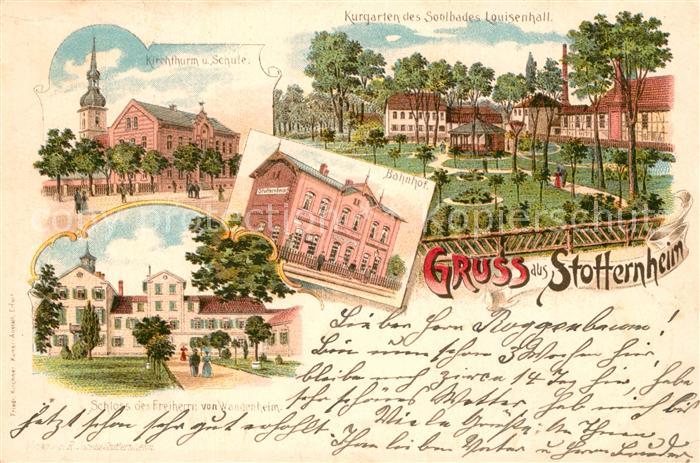 Kurgarten des Soolbades Louisenhall.
Kirchthurm u. Schule.
Bahnhof.
Stotternheim
GRUSS aus Stotternheim
Schloss des Freiherrn von Wangenheim.
Lieber Herr Roggenbaum!
Bin nun schon 3 Wochen hier,
bleibe noch zirca 14 Tag hier, habe
sehr schönes Wetter, hab mich bis
jetzt schon sehr gut erhohlt. Viele Grüße an Ihnen
Ihren lieben Vater u Herrn